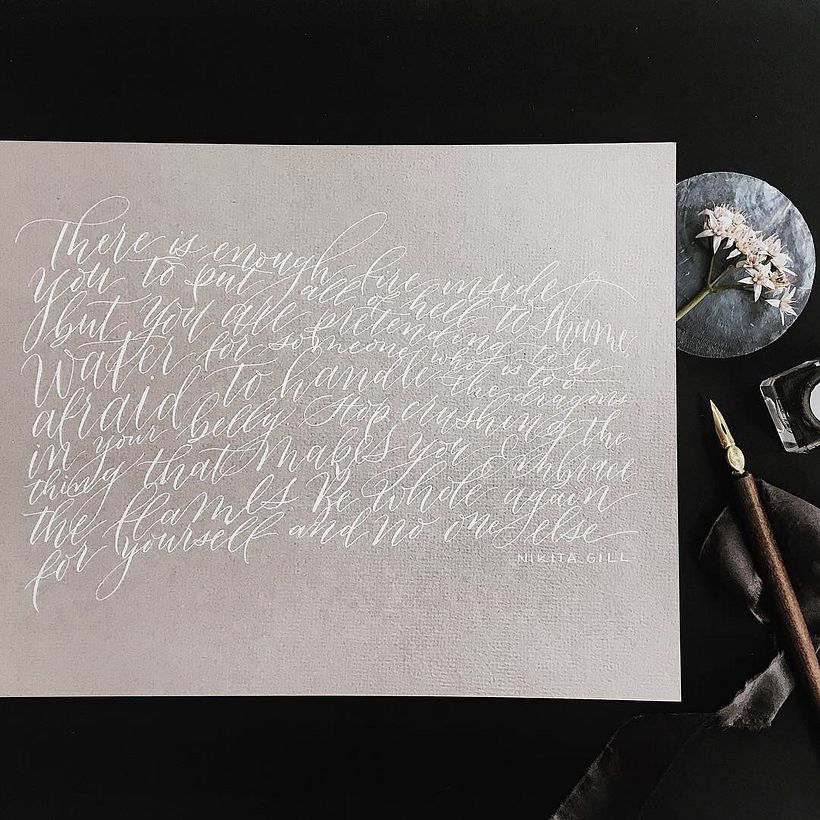 There is enough fire inside
you to put all of hell to shame,
but you are pretending to be
water for someone who is too
afraid to handle the dragons
in your belly. Stop crushing the
thing that makes you. Embrace
the flames. Be whole again
for yourself and no one else
NIKITA GILL